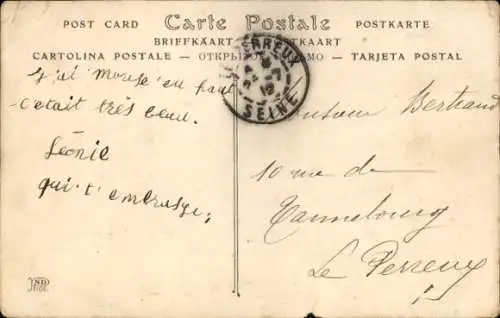 POST CARD Carte Postale POSTKARTE
BRIEFKAART
CARTOLINA POSTALE - TARJETA POSTAL
LE PERREUX
SEINE
j'ai monté en haut
c'était très beau.
Léonie
qui t'embrasse;
Monsieur Bertrand
10 rue de
Le Perreux
ND